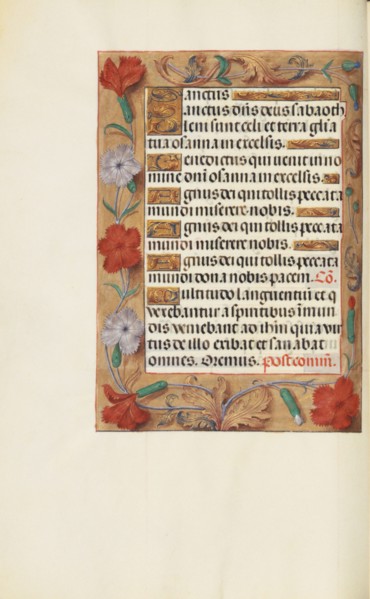 Sanctus
Sanctus dn̄s deus sabaoth
Pleni sunt celi et terra gl̄ia
tua osanna in excelsis.
Benedictus qui uenit in no
mine dnī osanna in excelsis.
Agnus dei qui tollis peccata
mundi miserere nobis.
Agnus dei qui tollis peccata
mundi miserere nobis.
Agnus dei qui tollis peccata
mundi dona nobis pacem. Cō.
Multitudo languentiū et q
vexebantur a spiritibus īmun
dis veniebant ad ih̄m quia vir
tus de illo exibat et sanabat
omnes. Oremus. Postcomm̄.